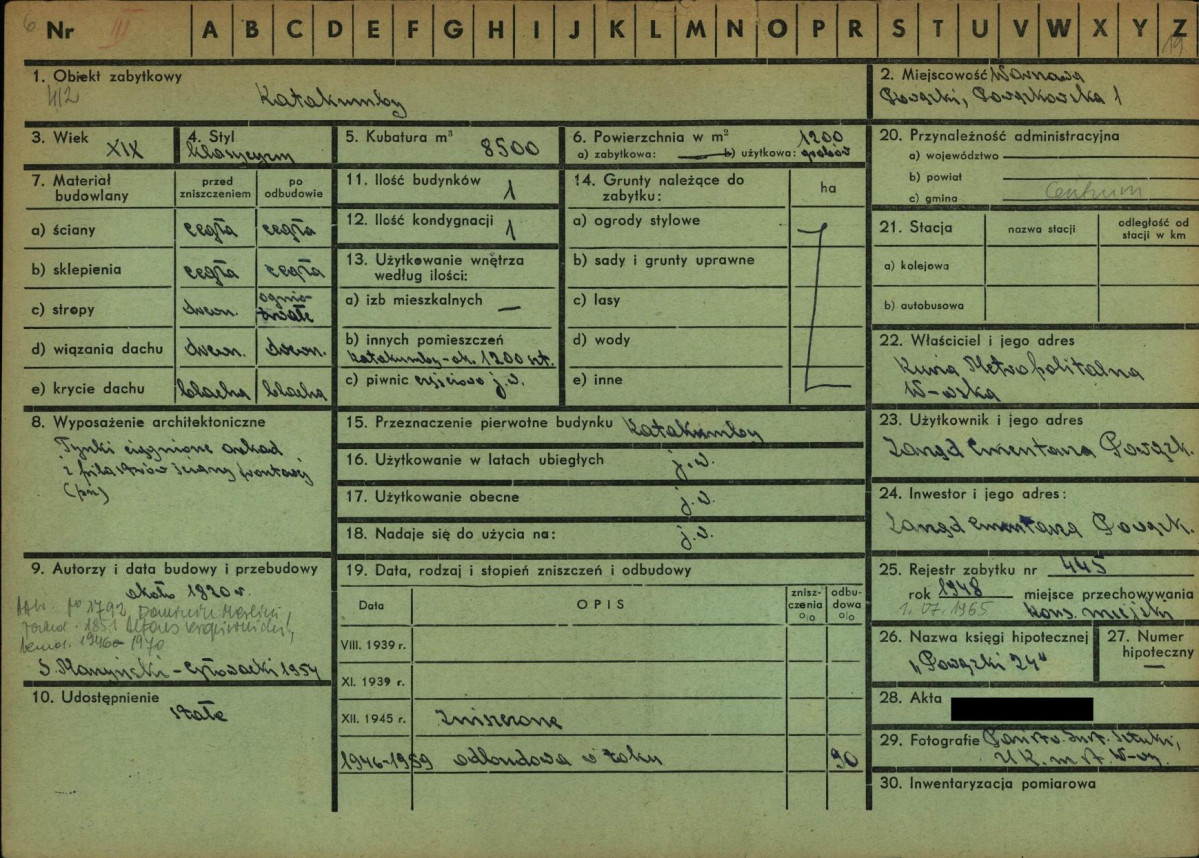 6 Nr III A B C D E F G H I J K L M N O P R S T U V W X Y Z
19
1. Obiekt zabytkowy
4/2 Katakumby
2. Miejscowość Warszawa
Powązki, Powązkowska 1
3. Wiek XIX
4. Styl
klasycyzm
5. Kubatura m³ 8500
6. Powierzchnia w m² 1200
a) zabytkowa: — b) użytkowa: grobów
7. Materiał budowlany
przed zniszczeniem
po odbudowie
a) ściany cegła cegła
b) sklepienia cegła cegła
c) stropy drewn. ognio-
trwałe
d) wiązania dachu drewn. drewn.
e) krycie dachu blacha blacha
8. Wyposażenie architektoniczne
Tynki ciągnione arkad
i pilastrów ściany frontowej
9. Autorzy i data budowy i przebudowy
około 1820 r.
po 1792, Dominik Merlini,
1851 Alfons
1946-1970
1954
10. Udostępnienie
stałe
11. Ilość budynków 1
12. Ilość kondygnacji 1
13. Użytkowanie wnętrza
według ilości:
a) izb mieszkalnych —
b) innych pomieszczeń
katakumby - ok. 1200 szt.
c) piwnic częściowo j.w.
14. Grunty należące do
zabytku:
ha
a) ogrody stylowe
b) sady i grunty uprawne
c) lasy
d) wody
e) inne
15. Przeznaczenie pierwotne budynku Katakumby
16. Użytkowanie w latach ubiegłych j.w.
17. Użytkowanie obecne j.w.
18. Nadaje się do użycia na: j.w.
19. Data, rodzaj i stopień zniszczeń i odbudowy
Data
OPIS
znisz-
czenia
o/o
odbu-
dowa
o/o
VIII. 1939 r.
XI. 1939 r.
XII. 1945 r. Zniszczone
1946-1959 odbudowa w toku 90
20. Przynależność administracyjna
a) województwo
b) powiat
c) gmina Centrum
21. Stacja
nazwa stacji
odległość od
stacji w km
a) kolejowa
b) autobusowa
22. Właściciel i jego adres
Kuria Metropolitalna
W-wska
23. Użytkownik i jego adres
Zarząd Cmentarza Powązk.
24. Inwestor i jego adres:
Zarząd Cmentarza Powązk.
25. Rejestr zabytku nr 445
rok 1948 miejsce przechowywania
1.07.1965 kons. miejski
26. Nazwa księgi hipotecznej
"Powązki 24"
27. Numer
hipoteczny
—
28. Akta
29. Fotografie Państw. Inst. Sztuki,
U.K. m. st. W-wy.
30. Inwentaryzacja pomiarowa